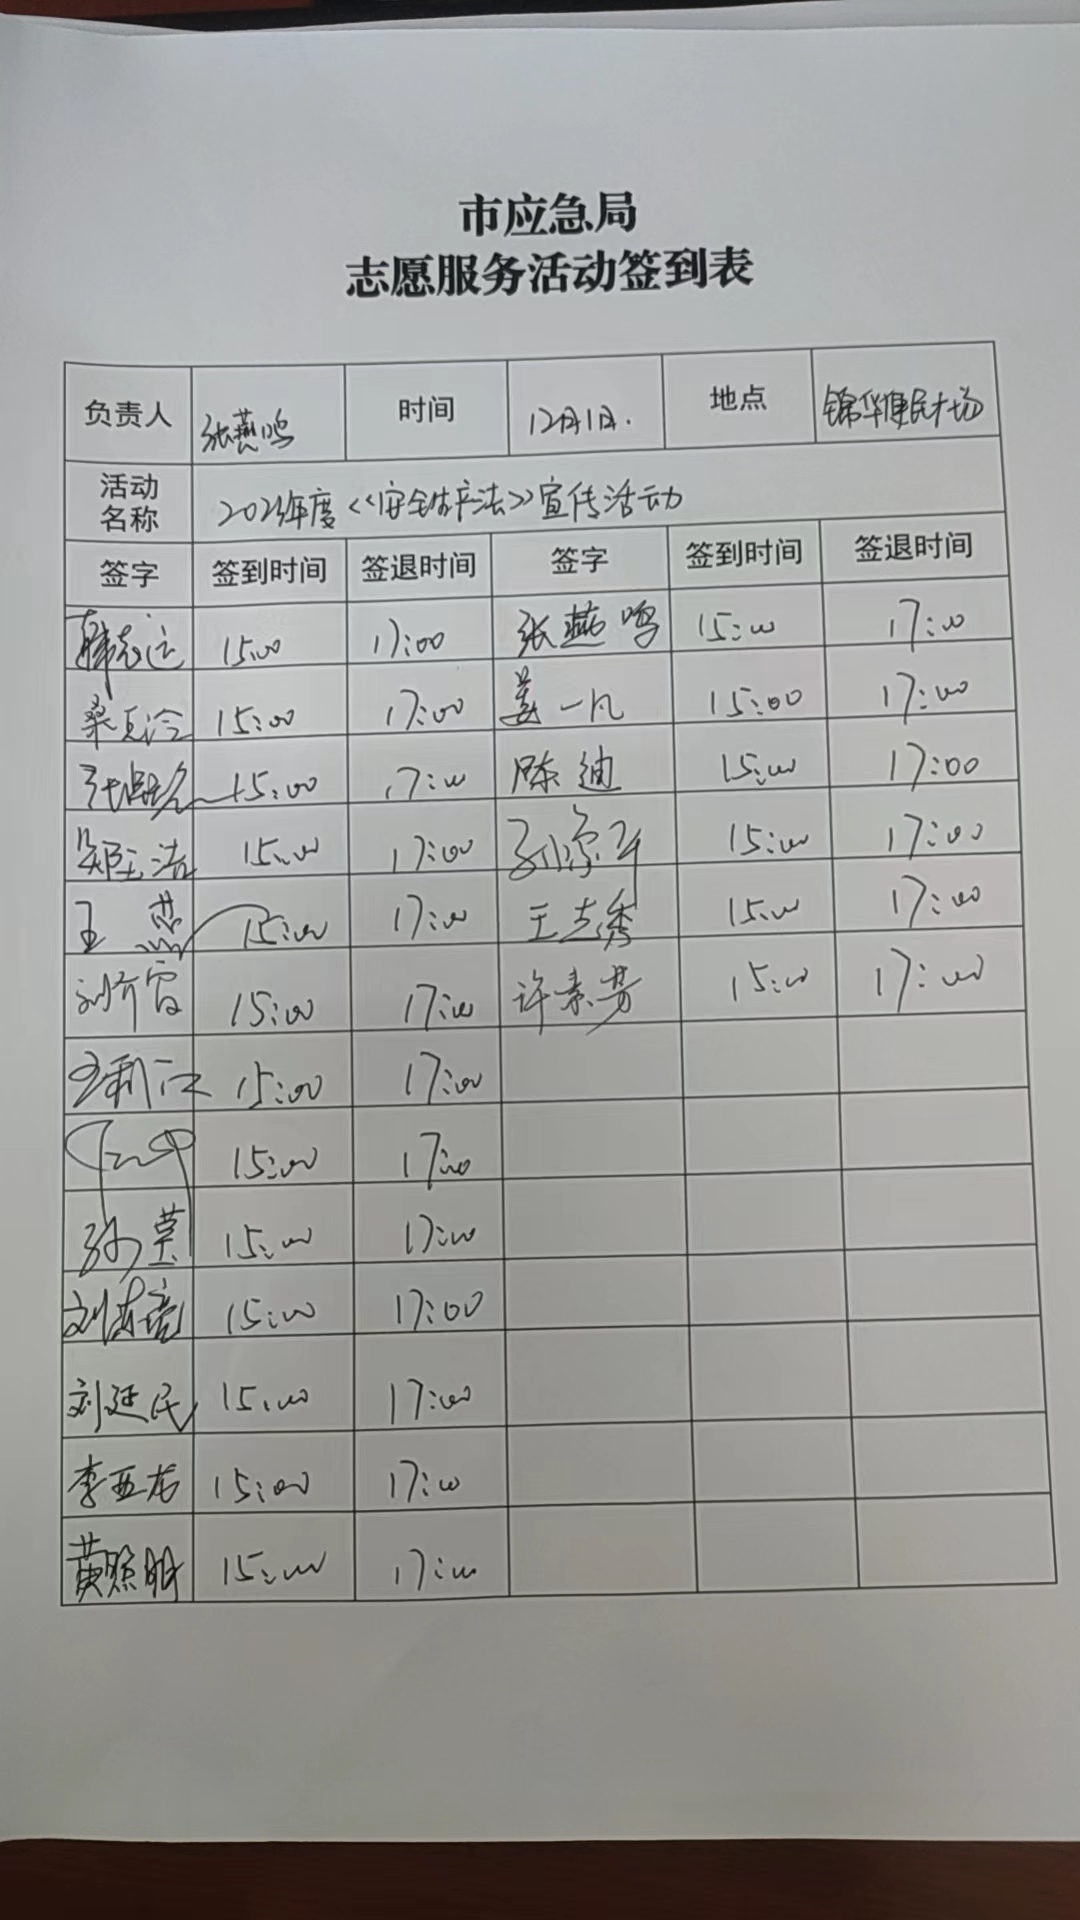 市应急局
志愿服务活动签到表
负责人 张燕鸣 时间 12月1日. 地点 锦华便民广场
活动名称 2023年度《安全生产法》宣传活动
签字 签到时间 签退时间 签字 签到时间 签退时间
韩志远 15:00 17:00 张燕鸣 15:00 17:00
15:00 17:00 姜一凡 15:00 17:00
15:00 17:00 陈迪 15:00 17:00
15:00 17:00 15:00 17:00
王燕 15:00 17:00 王志秀 15:00 17:00
15:00 17:00 许素芳 15:00 17:00
王利江 15:00 17:00
15:00 17:00
15:00 17:00
15:00 17:00
刘延民 15:00 17:00
李亚龙 15:00 17:00
黄照明 15:00 17:00